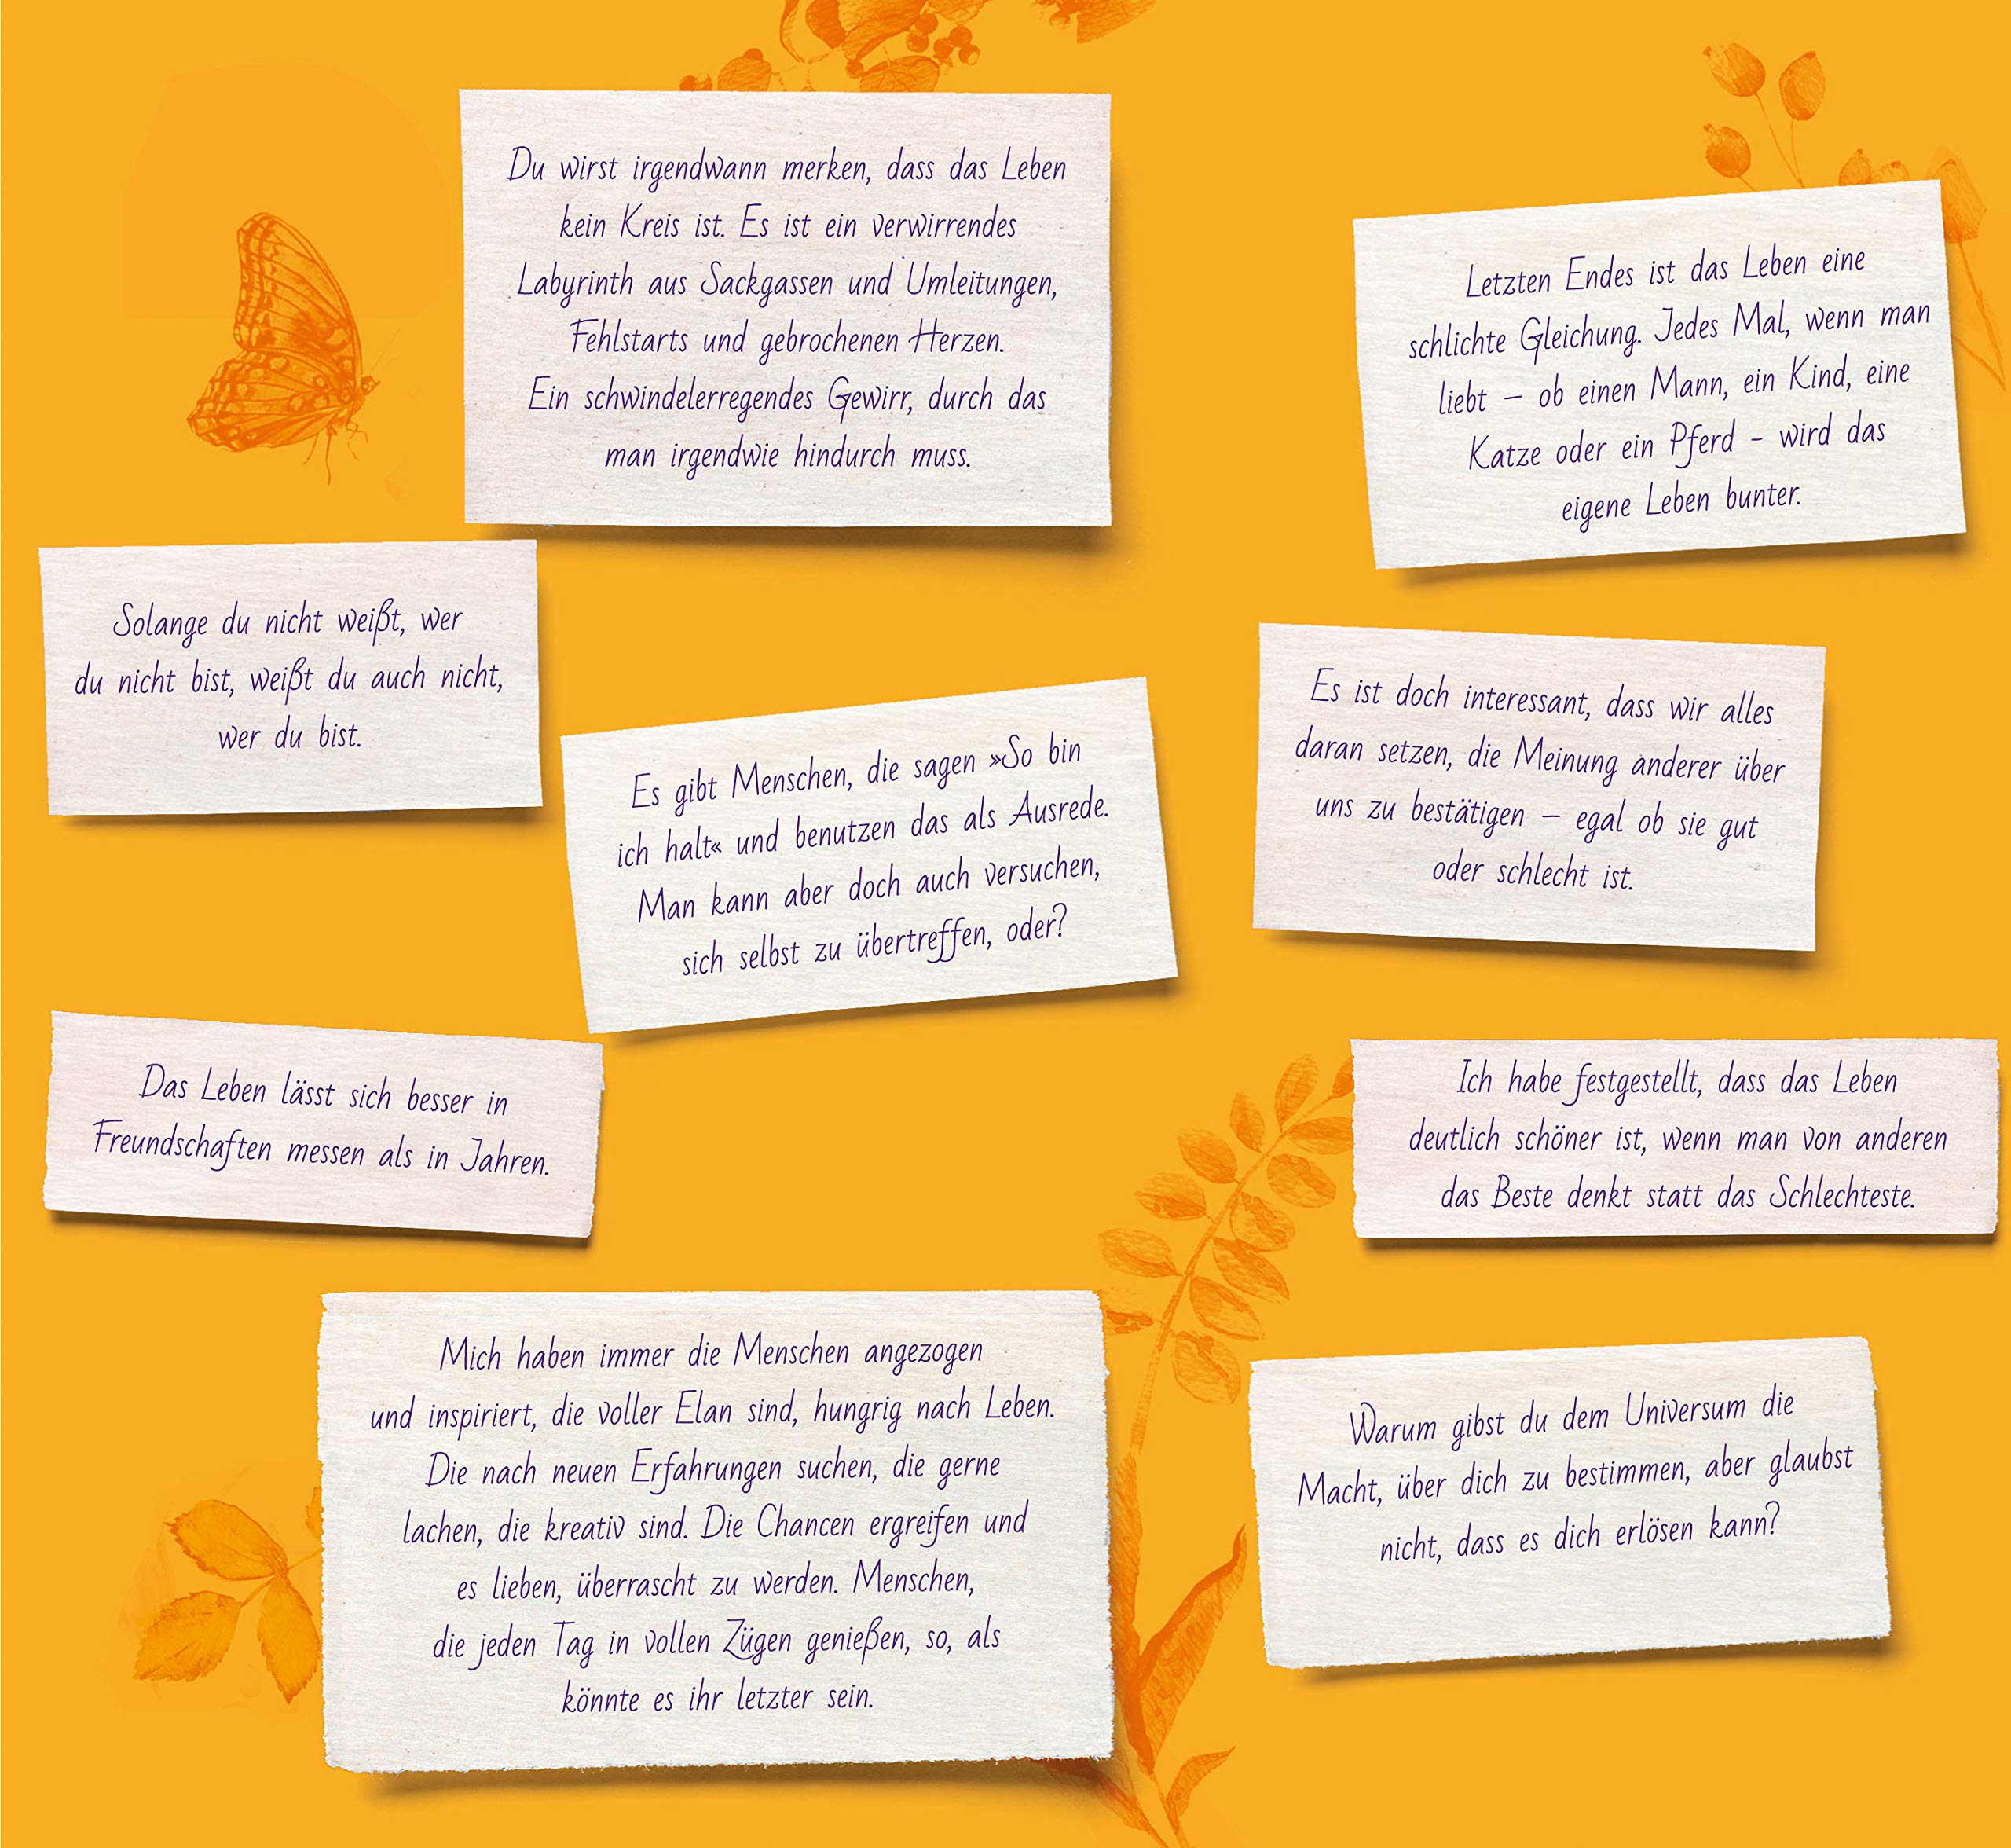 Du wirst irgendwann merken, dass das Leben
kein Kreis ist. Es ist ein verwirrendes
Labyrinth aus Sackgassen und Umleitungen,
Fehlstarts und gebrochenen Herzen.
Ein schwindelerregendes Gewirr, durch das
man irgendwie hindurch muss.
Letzten Endes ist das Leben eine
schlichte Gleichung. Jedes Mal, wenn man
liebt – ob einen Mann, ein Kind, eine
Katze oder ein Pferd - wird das
eigene Leben bunter.
Solange du nicht weißt, wer
du nicht bist, weißt du auch nicht,
wer du bist.
Es gibt Menschen, die sagen »So bin
ich halt« und benutzen das als Ausrede.
Man kann aber doch auch versuchen,
sich selbst zu übertreffen, oder?
Es ist doch interessant, dass wir alles
daran setzen, die Meinung anderer über
uns zu bestätigen – egal ob sie gut
oder schlecht ist.
Das Leben lässt sich besser in
Freundschaften messen als in Jahren.
Ich habe festgestellt, dass das Leben
deutlich schöner ist, wenn man von anderen
das Beste denkt statt das Schlechteste.
Mich haben immer die Menschen angezogen
und inspiriert, die voller Elan sind, hungrig nach Leben.
Die nach neuen Erfahrungen suchen, die gerne
lachen, die kreativ sind. Die Chancen ergreifen und
es lieben, überrascht zu werden. Menschen,
die jeden Tag in vollen Zügen genießen, so, als
könnte es ihr letzter sein.
Warum gibst du dem Universum die
Macht, über dich zu bestimmen, aber glaubst
nicht, dass es dich erlösen kann?